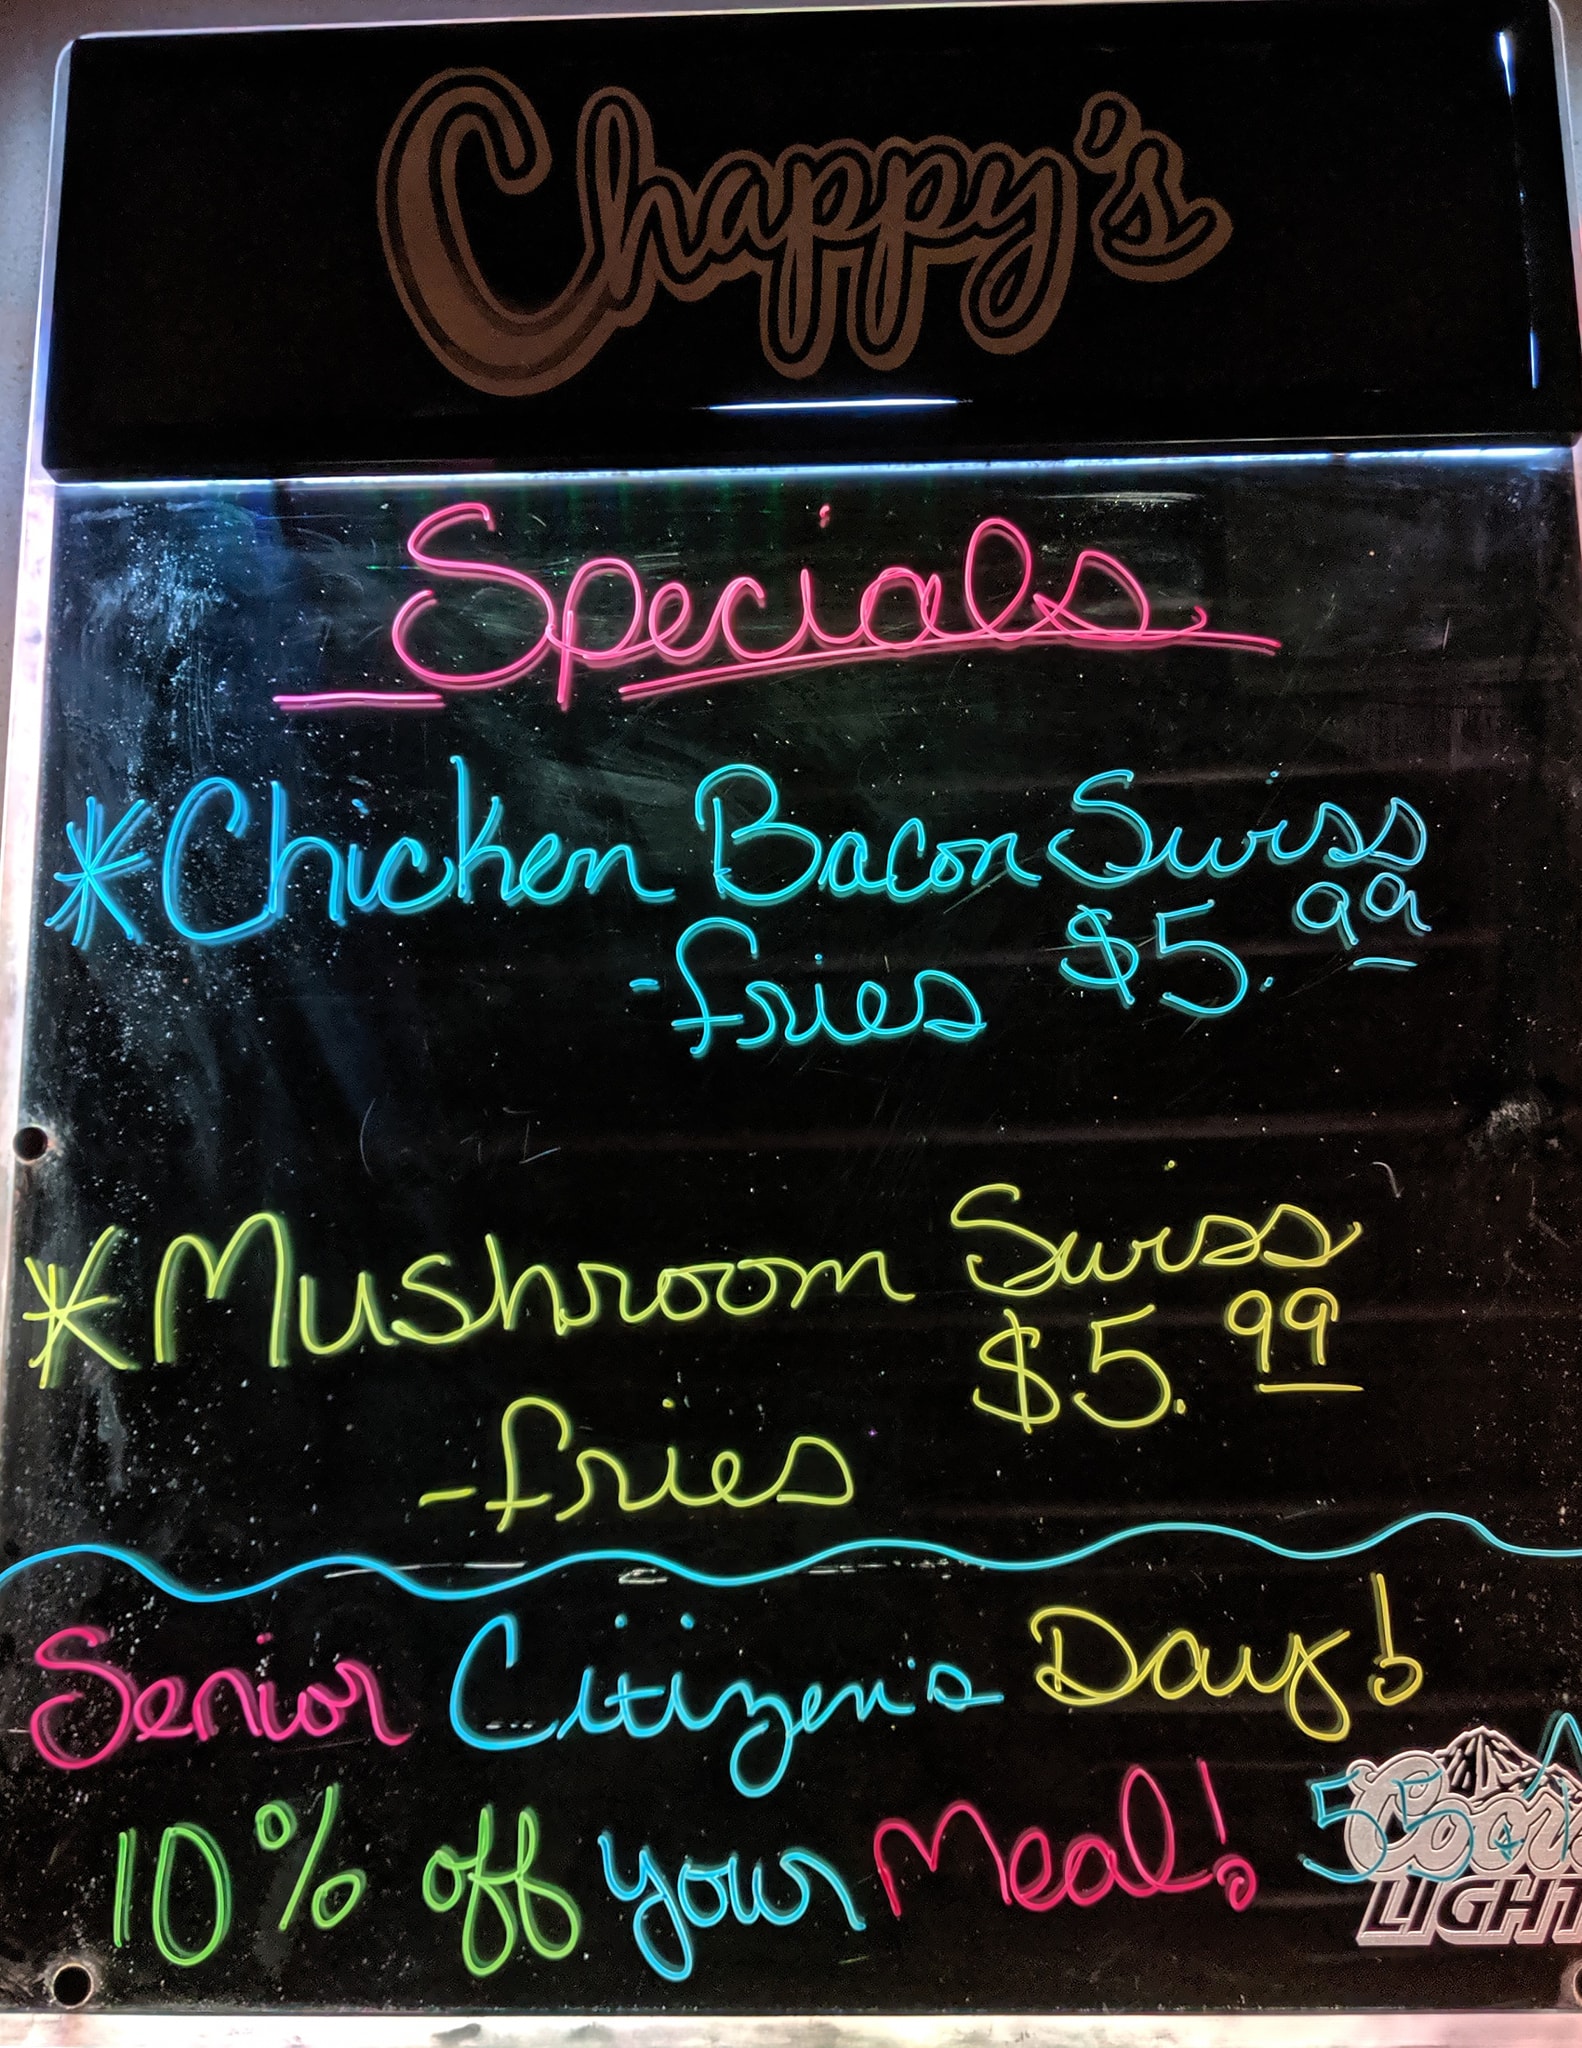 Chappy's
Specials
*Chicken Bacon Swiss
-fries $5.99
*Mushroom Swiss
$5.99
-fries
Senior Citizen's Day!
10% off your Meal!
55
Coors
LIGHT